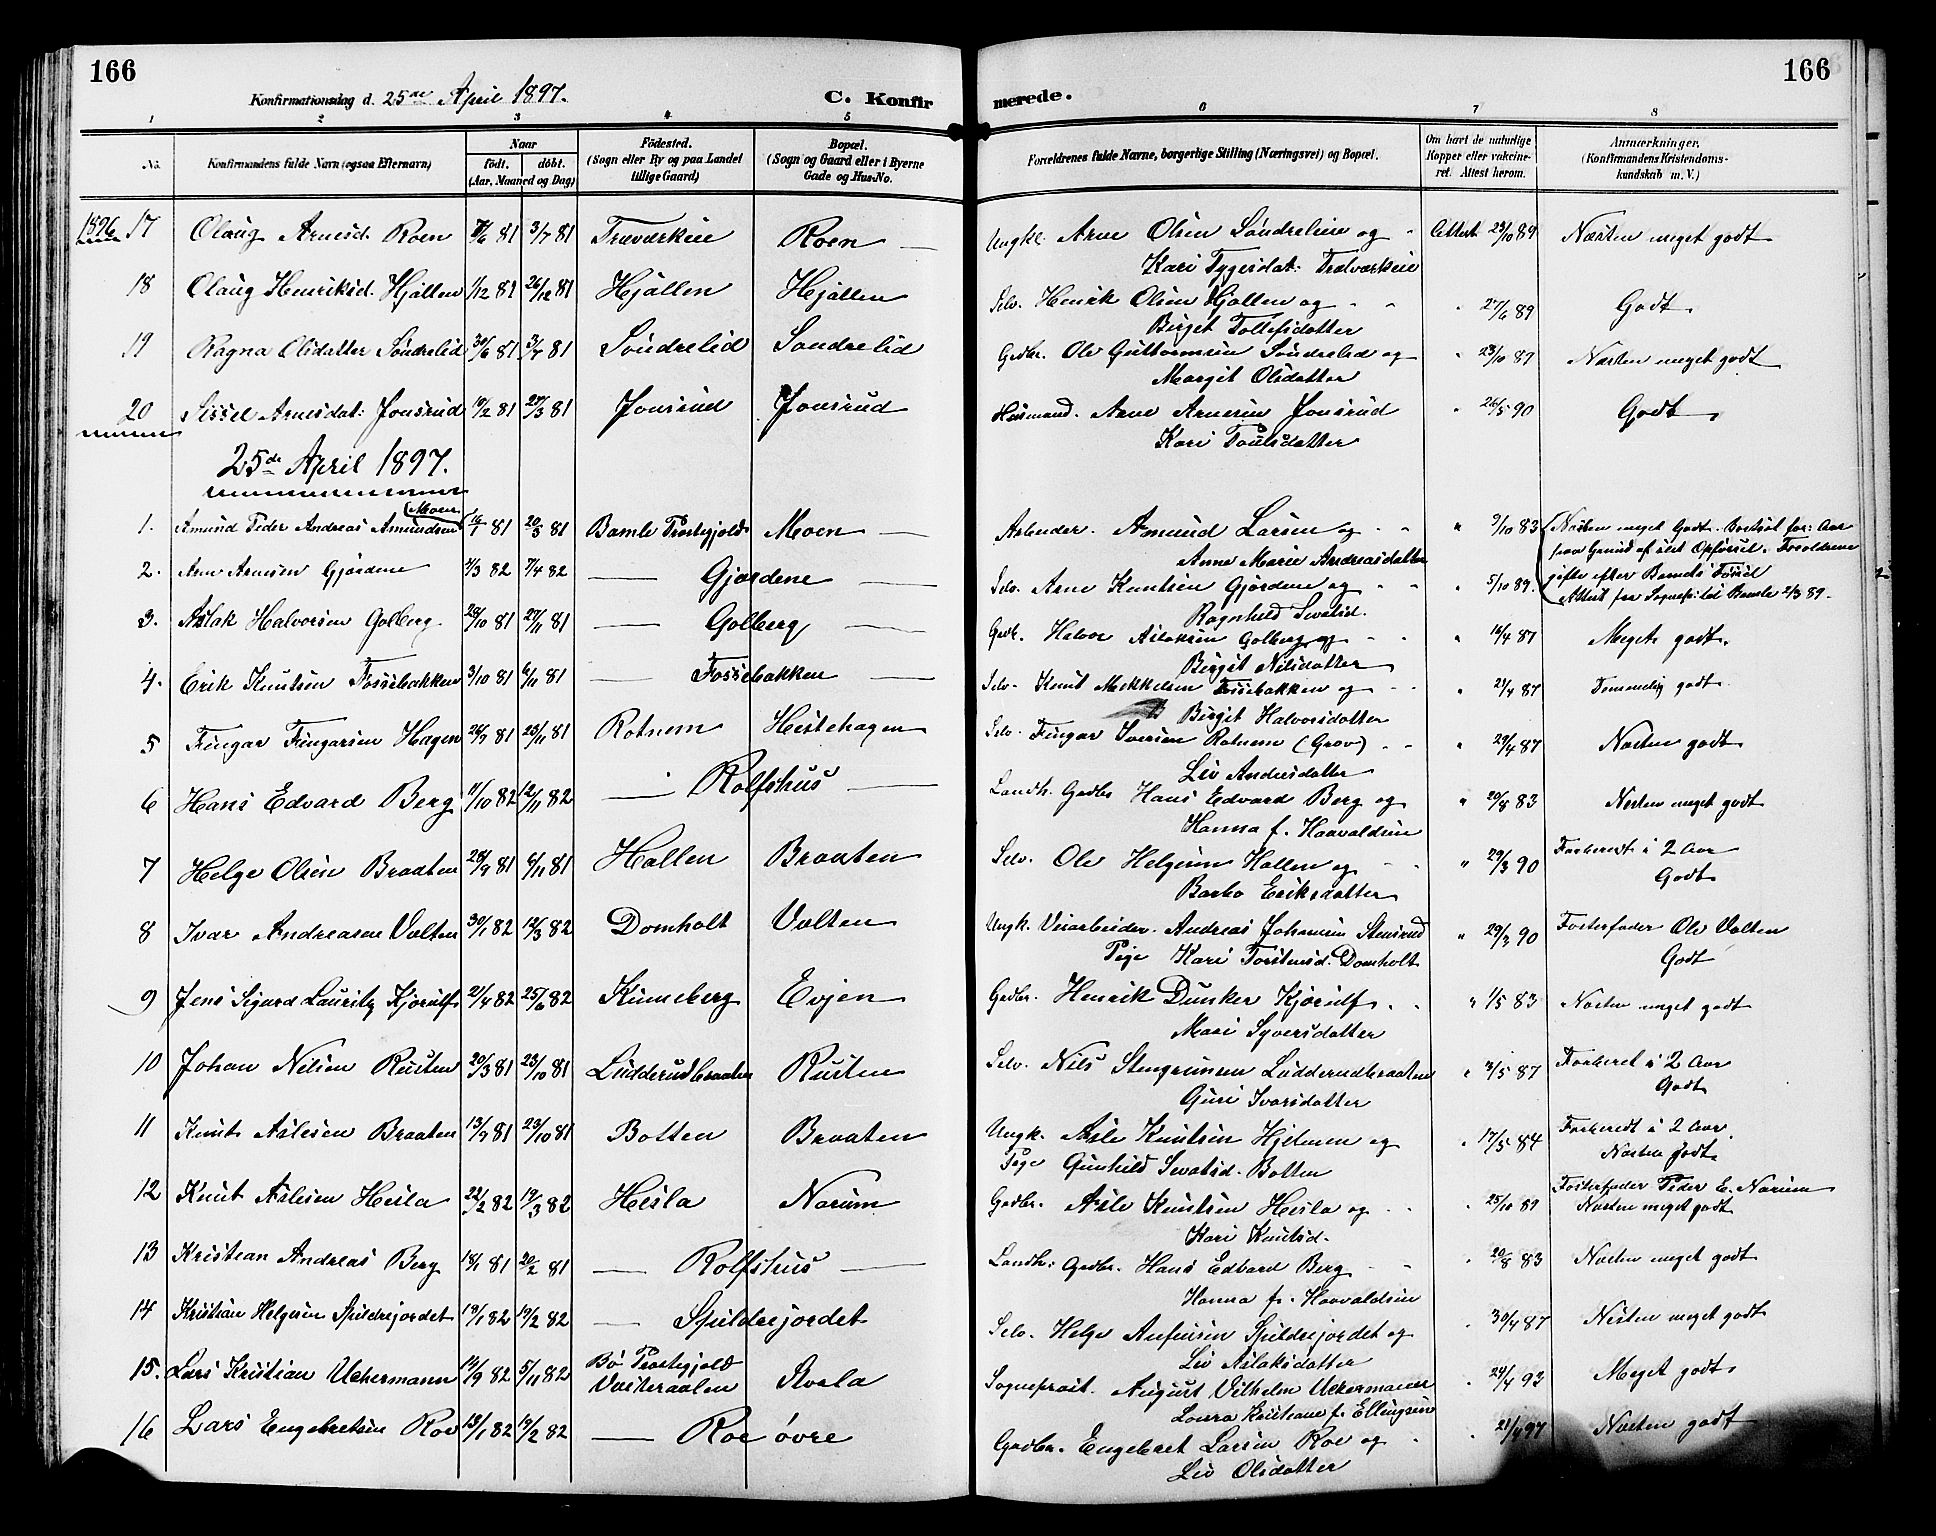 166
166
Konfirmationsdag d. 25de April 1897.
C. Konfirmerede.
1 2 3 4 5 6 7 8
No. Konfirmandens fulde Navn (ogsaa Efternavn) Naar født. døbt. (Aar, Maaned og Dag) Fødested. (Sogn eller By og paa Landet tillige Gaard) Bopæl. (Sogn og Gaard eller i Byerne Gade og Hus-No. Forældrenes fulde Navne, borgerlige Stilling (Næringsvei) og Bopæl. Om havt de naturlige Kopper eller vakcineret. Attest herom. Anmærkninger, (Konfirmandens Kristendomskundskab m. V.)
1896 17 Olaug Arnesd. Roen 81 3/7 81 Roen Ungkl. Arne Olsen Søndrelien og Attest 23/10 89 Næsten meget godt
Kari Tygesdat:
18 Olaug Henriksd. Hjallen 1/12 81 26/12 81 Hjallen Hjallen Selv. Henrik Olsen Hjallen og 27/6 89 Godt.
Birget Tollefsdatter
19 Ragna Olsdatter Søndrelid 30/6 81 31/7 81 Søndrelid Søndrelid Gdbr. Ole Guttormsen Søndrelid og 23/10 87 Næsten meget godt
Margit Olsdatter
20 Sissel Arnesdat: Jonsrud 19/2 81 27/3 81 Jonsrud Jonsrud Husmand. Arne Arnesen Jonsrud 26/5 90 Godt
Kari
25de April 1897.
1. Amund Peder Andreas Amundsen (Moen) 16/1 81 20/3 81 Bamle Præstegjeld Moen Amund Larsen og 9/10 83 Næsten meget Godt.
Anne Marie Andreasdatter
gifte efter Barnets Fødsel
2. Arne Arnesen Gjørdene 11/3 82 7/4 82 — Gjørdene — Selv. Arne Knutsen Gjørdene og 5/10 89. Attest fra Sogneprest i Bamle 2/3 89.
Ragnhild Sevatsd.
3. Aslak Halvorsen Golberg. 28/10 81 27/11 81 — Golberg — Gdbr. Halvor Aslaksen Golberg og 16/4 87 Meget godt.
Birgit Nilsdatter
4. Erik Knutsen Fossebakken 3/10 81 6/11 81 — Fossebakken — Selv. Knut Mekkelsen Fossebakken og 21/4 87 Temmelig godt
Birgit Halvorsdatter
5 Fingar Fingarsen Hagen 81 23/11 81 Rotnem Hestehagen Selv. Fingar Iversen Rotnem (Grov) 29/4 87 Næsten godt
Liv Andersdatter
6 Hans Edvard Berg 11/10 82 12/11 82 — Rolfshus — Landh. Gdbr Hans Edvard Berg og 20/8 83 Næsten meget godt
Hanna f. Haavaldsen
7 Helge Olsen Braaten 28/9 81 6/11 81 Hallen Braaten Selv. Ole Helgesen Hallen og 29/3 90 Forberedt i 2 Aar
Barbo Eriksdatter Godt
8 Ivar Andreasen Valten 30/1 82 12/3 82 Domholt Valten Ungk. Veiarbeider. Andreas Johansen Stensrud 29/3 90 Fosterfader Ole Valten
Pige Kari Torstensd. Domholt Godt
9 Jens Sigurd Lauritz Kjørulf 21/4 82 25/6 82 Kinneberg Evjen Gdbr. Henrik Dunker Kjørulf 1/5 83 Næsten meget godt
Mari Syversdatter
10 Johan Nilsen Rusten 20/3 81 23/10 81 Ludderudbraaten Rusten Selv. Nils Stengrimsen Ludderudbraaten 3/5 87 Forberet i 2 Aar
Guri Ivarsdatter Godt
11 Knut Aslesen Braaten 13/9 81 23/10 81 Botten Braaten Ungk. Asle Knutsen Hjelmen og 17/5 84 Forberedt i 2 Aar.
Pige Gunhild Sevatsd. Botten Næsten godt
12 Knut Aslesen Hesla 22/2 82 19/3 82 Hesla Narum Gdbr. Asle Knutsen Hesla og 25/10 87 Fosterfader Peder E. Narum
Kari Knutsd. Næsten meget godt
13 Kristian Andreas Berg 18/1 81 20/2 81 — Rolfshus — Landh. Gdbr. Hans Edvard Berg 20/8 83 Næsten meget godt
Hanna f. Haavaldsen
14 Kristian Helgesen Spildrejordet 19/1 82 19/2 82 — Spildrejordet Selv. Helge Anfinsen Spildrejordet og 30/4 87 Næsten meget godt
Liv Aslaksdatter
15. Lars Kristian Uchermann 19/9 82 5/11 82 Bø Præstegjeld Vesteraalen Sogneprest. August Vilhelm Uchermann 24/4 93 Meget godt
Laura Kristiane f. Ellingsen
16 Lars Engebretsen Roe 13/1 82 19/2 82 — Roe øvre Gdbr. Engebret Larsen Roe og 21/4 97 Næsten godt
Liv Olsdatter